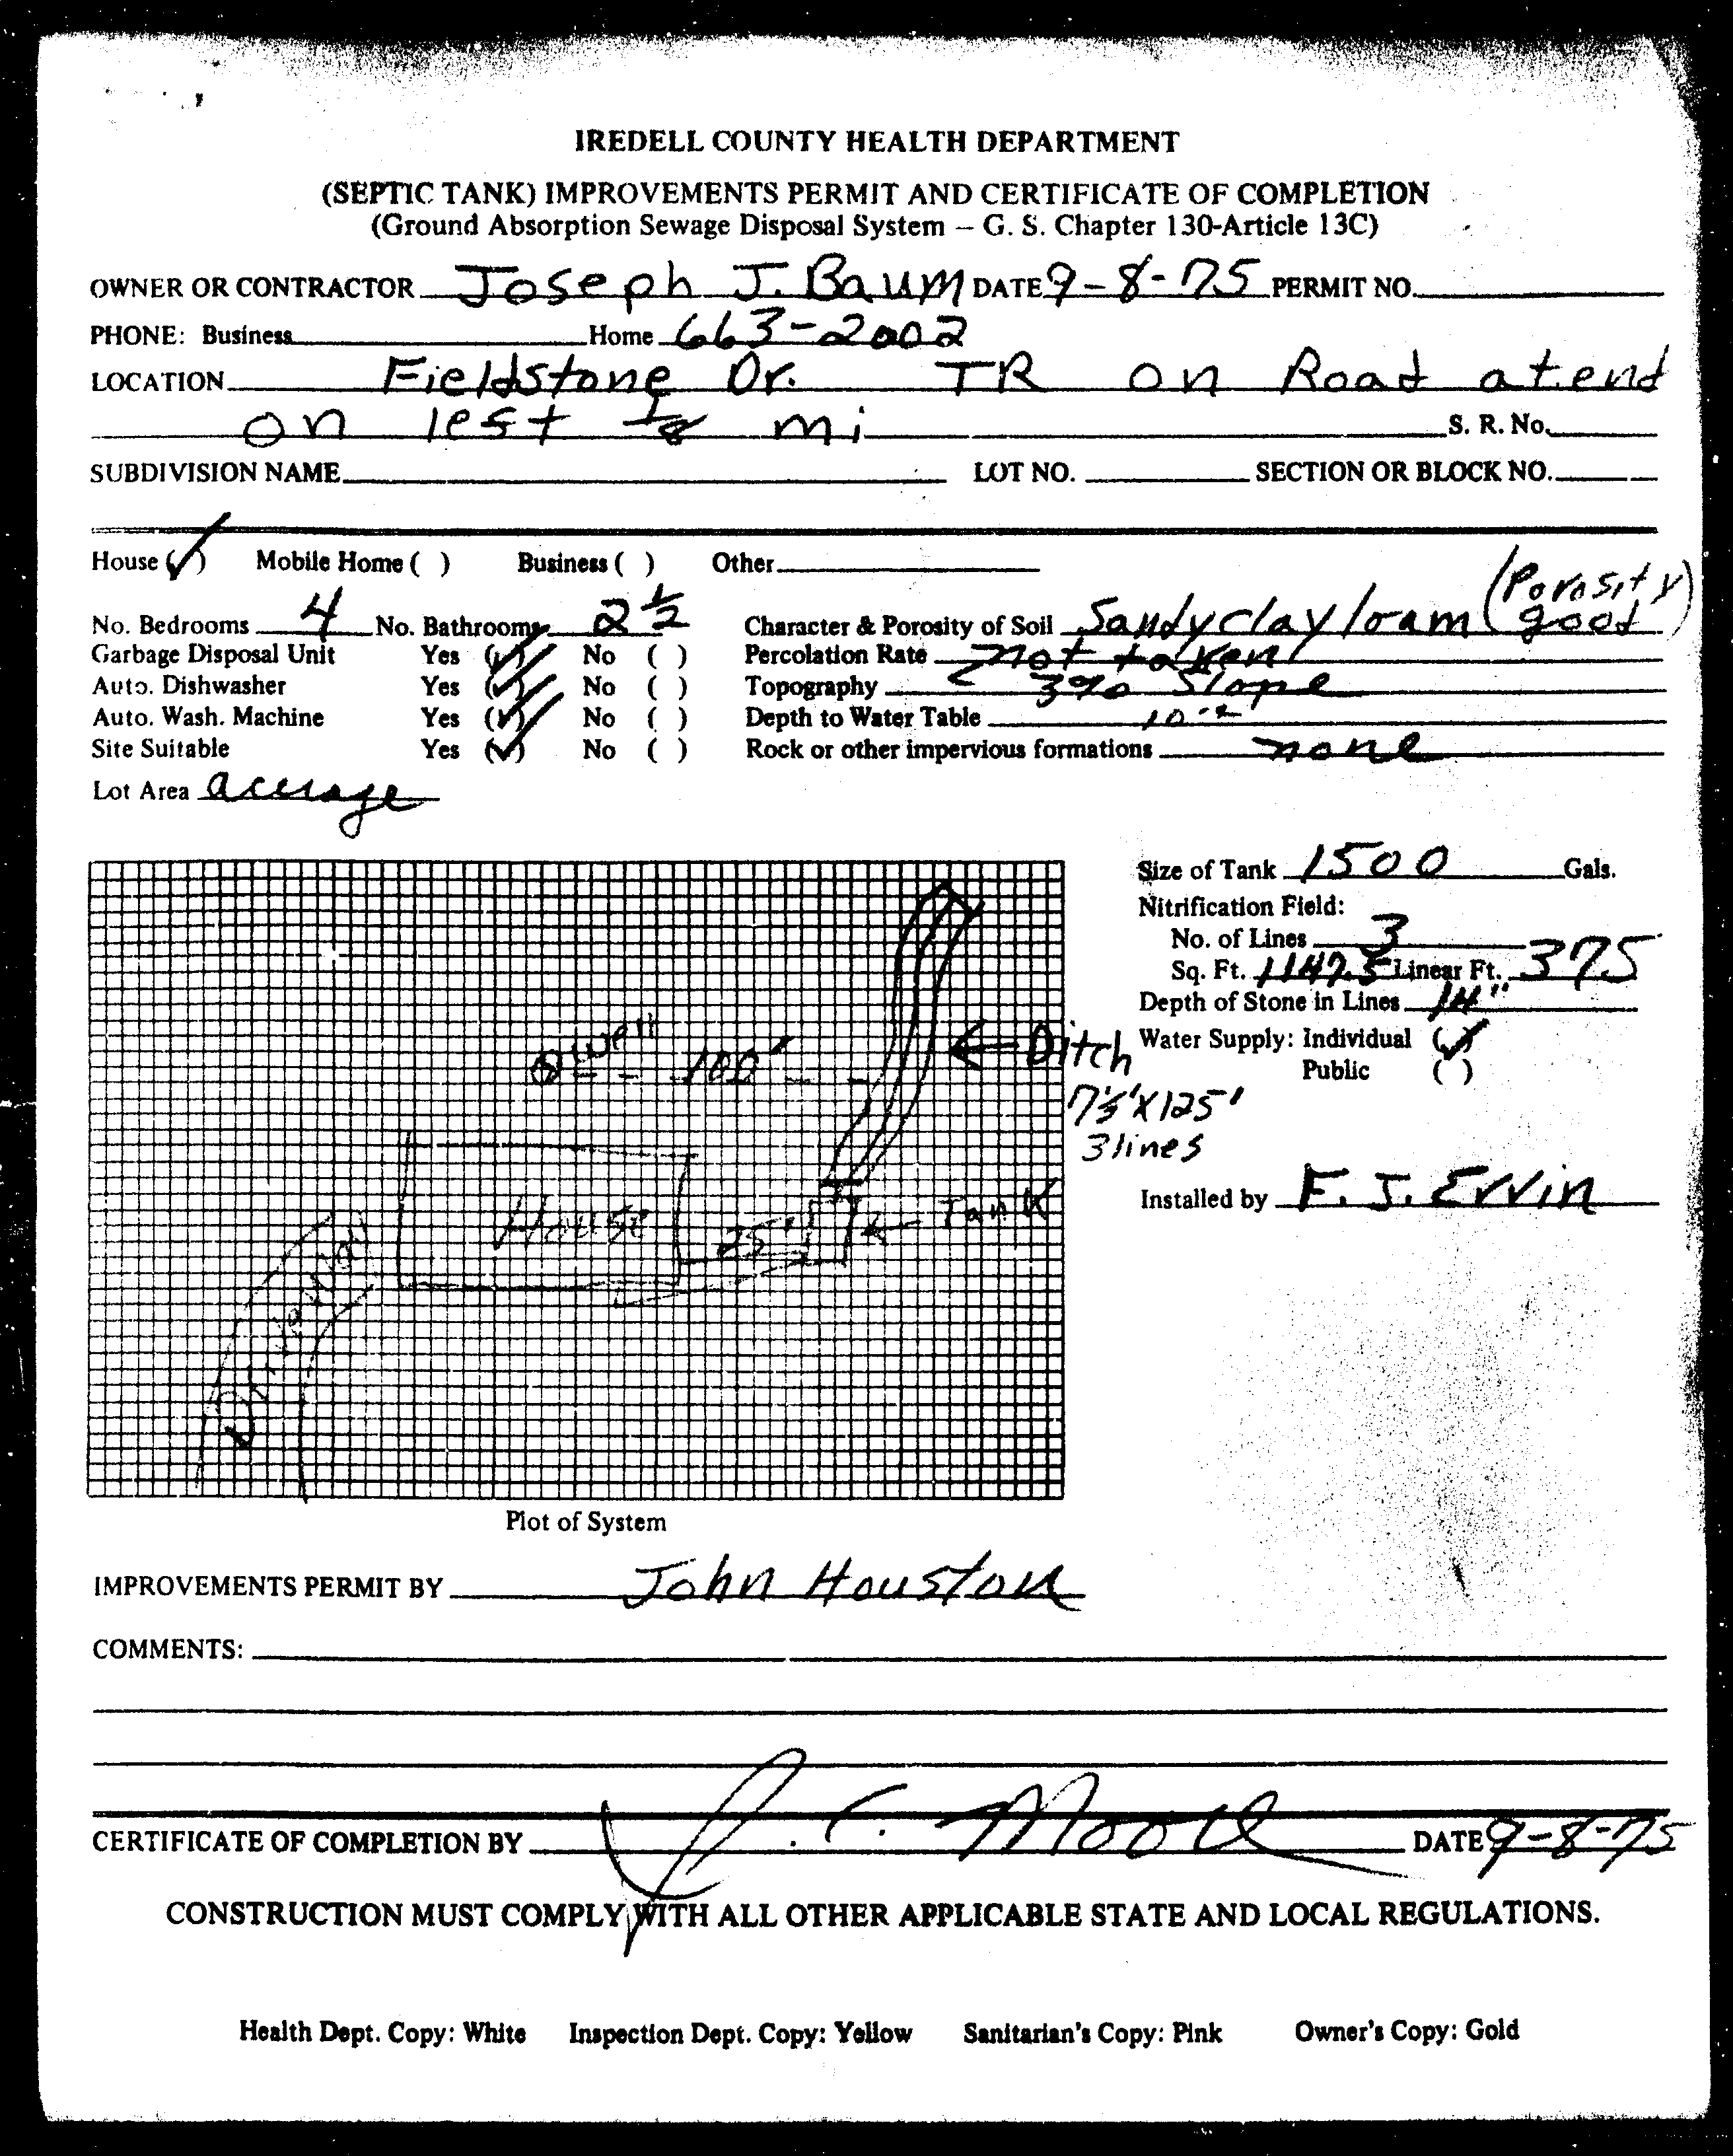 IREDELL COUNTY HEALTH DEPARTMENT
(SEPTIC TANK) IMPROVEMENTS PERMIT AND CERTIFICATE OF COMPLETION
(Ground Absorption Sewage Disposal System – G. S. Chapter 130-Article 13C)
OWNER OR CONTRACTOR Joseph J. Baum DATE 9-8-75 PERMIT NO.
PHONE: Business Home 663-2002
LOCATION Fieldstone Dr. TR on Road at end
on lest 1/8 mi S. R. No.
SUBDIVISION NAME LOT NO. SECTION OR BLOCK NO.
House (✓) Mobile Home ( ) Business ( ) Other
No. Bedrooms 4 No. Bathrooms 2 1/2 Character & Porosity of Soil Sandy clay loam (Porosity good)
Garbage Disposal Unit Yes (✓) No ( ) Percolation Rate not taken
Auto. Dishwasher Yes (✓) No ( ) Topography 3% Slope
Auto. Wash. Machine Yes (✓) No ( ) Depth to Water Table
Site Suitable Yes (✓) No ( ) Rock or other impervious formations none
Lot Area acerage
Size of Tank 1500 Gals.
Nitrification Field:
No. of Lines 3
Sq. Ft. 1147.5 Linear Ft. 375
Depth of Stone in Lines 14"
Water Supply: Individual (✓)
Public ( )
well 100' ← Ditch
3 lines
House 25' ← Tank
Driveway
Installed by F. J. Ervin
Plot of System
IMPROVEMENTS PERMIT BY John Houston
COMMENTS:
CERTIFICATE OF COMPLETION BY J. C. Moore DATE 9-8-75
CONSTRUCTION MUST COMPLY WITH ALL OTHER APPLICABLE STATE AND LOCAL REGULATIONS.
Health Dept. Copy: White Inspection Dept. Copy: Yellow Sanitarian's Copy: Pink Owner's Copy: Gold